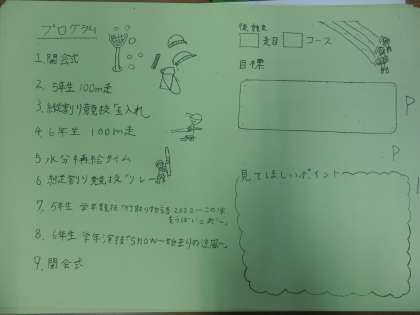 プログラム
1. 開会式
2. 5年生 100m走
3. 縦割り競技「玉入れ
4. 6年生 100m走
5 水分補給タイム
6 縦割り競技「リレー
7. 5年生 学年競技「竹取り物語2022〜
8. 6年生 学年演技「SNOW〜始まりの
9. 閉会式
徒競走
走目 コース
目標
P
P
見てほしいポイント